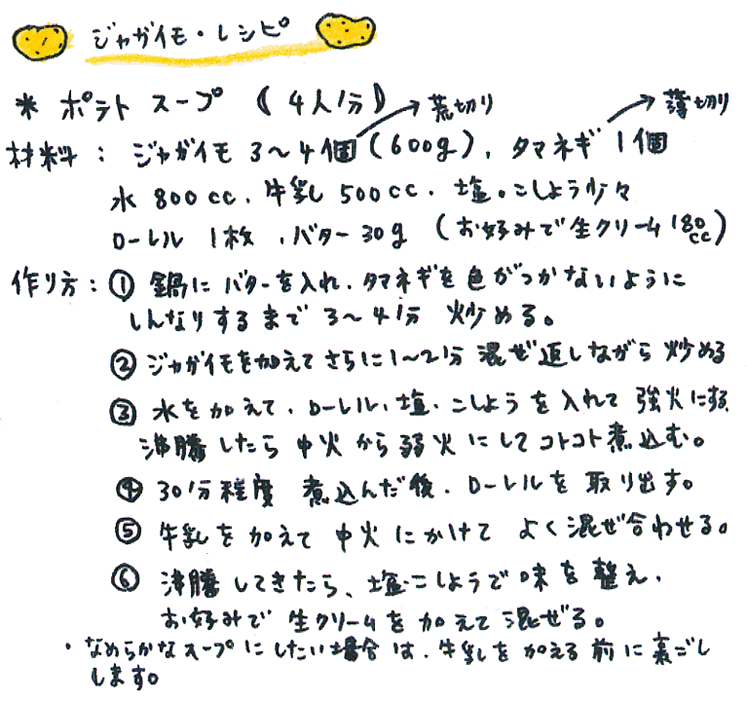 ジャガイモ・レシピ
* ポテトスープ (4人分)
荒切り
薄切り
材料: ジャガイモ 3〜4個(600g)、タマネギ 1個
水 800cc、牛乳 500cc、塩・こしょう少々
ローレル 1枚、バター30g (お好みで生クリーム180cc)
作り方: ① 鍋にバターを入れ、タマネギを色がつかないように
しんなりするまで 3〜4分 炒める。
② ジャガイモを加えてさらに1〜2分 混ぜ返しながら 炒める
③ 水を加えて、ローレル、塩、こしょうを入れて 強火にする
沸騰したら 中火から弱火にしてコトコト煮込む。
④ 30分程度 煮込んだ後、ローレルを取り出す。
⑤ 牛乳を加えて 中火にかけて よく混ぜ合わせる。
⑥ 沸騰してきたら、塩こしょうで味を整え、
お好みで 生クリームを加えて混ぜる。
・なめらかなスープにしたい場合は、牛乳を加える前に裏ごし
します。